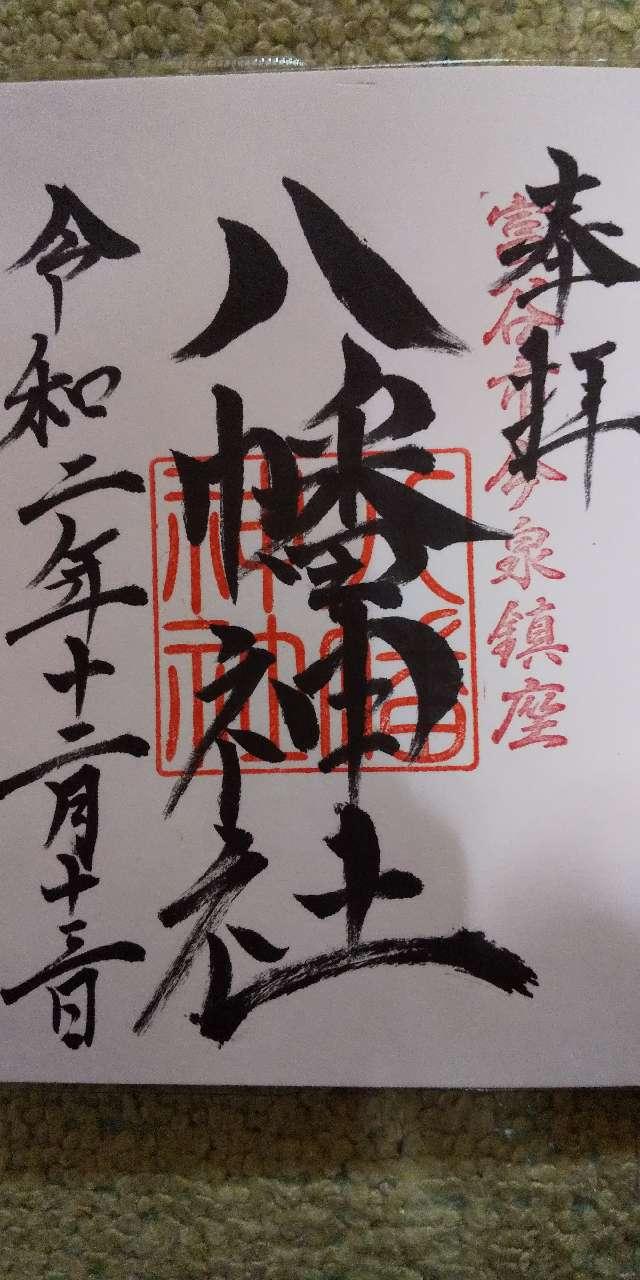 奉拝
富谷市今泉鎮座
八幡神社
八幡
神社
令和二年十二月十三日